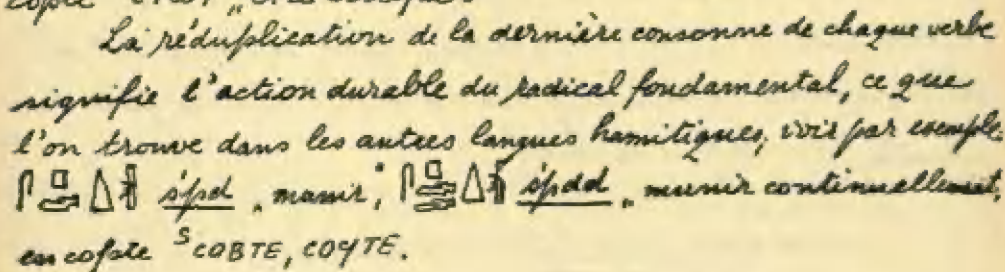 La réduplication de la dernière consonne de chaque verbe
signifie l'action durable du radical fondamental, ce que
l'on trouve dans les autres langues hamitiques, voir par exemple
śpd „munir", śpdd „munir continuellement,
en copte ᔆCOBTE, COϤTE.